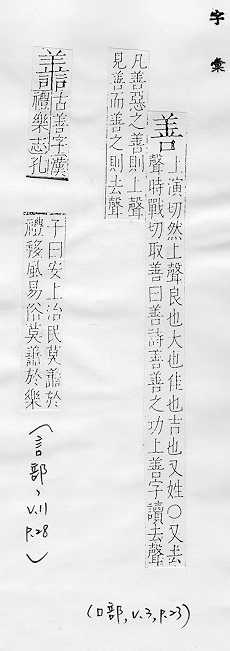 字彙
善
上演切然上聲良也大也佳也吉也又姓○又去
聲時戰切取善曰善詩善善之功上善字讀去聲
凡善惡之善則上聲
見善而善之則去聲
(口部, v.3, p.23)
譱
古善字漢
禮樂志孔
子曰安上治民莫譱於
禮移風易俗莫譱於樂
(言部, v.11
p.28)